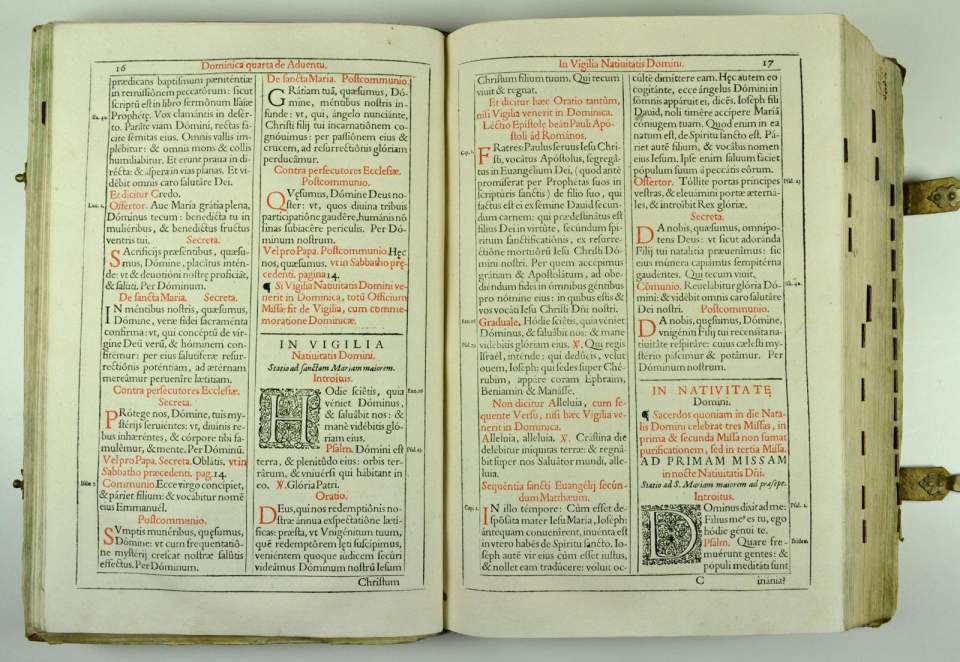 16 Dominica quarta de Aduentu.
prædicans baptismum pœnitentiæ
in remissionem peccatorum: sicut
scriptū est in libro sermonum Isaiæ
Prophetę. Vox clamantis in deser-
to. Paráte viam Dómini, rectas fa-
cite semitas eius. Omnis vallis im-
plébitur: & omnis mons & collis
humiliabitur. Et erunt praua in di-
récta: & áspera in vias planas. Et vi-
débit omnis caro salutáre Dei.
Et dicitur Credo.
Luc. 1.
Offertor. Aue Maria grátia plena,
Dóminus tecum: benedicta tu in
muliéribus, & benedictus fructus
ventris tui. Secreta.
SAcrificijs præséntibus, quæsu-
mus, Dómine, placátus inten-
de: vt & deuotióni nostrę proficiát,
& salúti. Per Dóminum.
De sancta Maria. Secreta.
IN méntibus nostris, quæsumus,
Dómine, veræ fidei sacraménta
confirma: vt, qui concéptū de vir-
gine Deū verū, & hóminem con-
fitémur: per eius salutiferæ resur-
rectiónis poténtiam, ad ætérnam
mereámur peruenire lætitiam.
Contra persecutores Ecclesiæ.
Secreta.
PRótege nos, Dómine, tuis my-
stérijs seruiéntes: vt, diuinis re-
bus inhæréntes, & córpore tibi fa-
mulémur, & mente. Per Dóminū.
Vel pro Papa. Secreta. Oblátis, vt in
Sabbatho præcedenti. pag. 14.
Communio Ecce virgo concipiet,
& páriet filium: & vocabitur nomē
eius Emmanuél.
Postcommunio.
SVmptis munéribus, quæsumus,
Dómine: vt cum frequentatió-
ne mystérij crescat nostræ salútis
effectus. Per Dóminum.
De sancta Maria. Postcommunio.
GRátiam tuā, quæsumus, Dó-
mine, méntibus nostris in-
funde: vt, qui, ángelo nunciánte,
Christi filij tui incarnatiónem co-
gnóuimus: per passiónem eius &
crucem, ad resurrectiónis glóriam
perducámur.
Contra persecutores Ecclesiæ.
Postcommunio.
QVęsumus, Dómine Deus no-
ster: vt, quos diuina tribuis
participatióne gaudére, humánis nō
sinas subiacére periculis. Per Dó-
minum nostrum.
Vel pro Papa. Postcommunio. Hęc
nos, quæsumus. vt in Sabbatho prę-
cedenti. pagina 14.
¶ Si Vigilia Natiuitatis Domini ve-
nerit in Dominica, totū Officium
Missæ fit de Vigilia, cum comme-
moratione Dominicæ.
IN VIGILIA
Natiuitatis Domini.
Statio ad sanctam Mariam maiorem.
Introitus.
HOdie sciétis, quia
véniet Dóminus,
& saluábit nos: &
manè vidébitis gló-
riam eius.
Psalm. Dómini est
terra, & plenitúdo eius: orbis ter-
rárum, & vniuérsi qui hábitant in
eo. ℣. Glória Patri.
Oratio.
DEus, qui nos redemptiónis no-
stræ ánnua exspectatióne læti-
ficas: præsta, vt Vnigénitum tuum,
quē redemptórem lęti suscipimus,
veniéntem quoque iúdicem secúri
videámus Dóminum nostrū Iesum
Christum
In Vigilia Natiuitatis Domini. 17
Christum filium tuum. Qui tecum
viuit & regnat.
Et dicitur hæc Oratio tantùm,
nisi Vigilia venerit in Dominica.
Léctio Epistolæ beáti Pauli Apó-
stoli ad Romános.
Cap. 1.
FRatres: Paulus seruus Iesu Chri-
sti, vocátus Apóstolus, segregá-
tus in Euangelium Dei, (quod antè
promiserat per Prophétas suos in
scriptúris sanctis) de filio suo, qui
factus est ei ex sémine Dauid secun-
dum carnem: qui prædestinátus est
filius Dei in virtúte, secúndum spi-
ritum sanctificatiónis, ex resurre-
ctióne mortuórū Iesu Christi Dó-
mini nostri. Per quem accépimus
grátiam & Apostolátum, ad obe-
diendum fidei in ómnibus géntibus
pro nómine eius: in quibus estis &
vos vocáti Iesu Christi Dn̄i nostri.
Graduale. Hódie sciétis, quia véniet
Dóminus, & saluábit nos: & mane
vidébitis glóriam eius. ℣. Qui regis
Israél, inténde: qui dedúcis, velut
ouem, Ioseph: qui sedes super Ché-
rubim, appáre coram Ephraim,
Beniamin & Manásse.
Non dicitur Alleluia, cum se-
quente Versu, nisi hæc Vigilia ve-
nerit in Dominica.
Alleluia, alleluia. ℣. Crástina die
delébitur iniquitas terræ: & regná-
bit super nos Saluátor mundi, alle-
luia.
Sequéntia sancti Euangélij secún-
dum Matthæum.
Cap. 1.
IN illo témpore: Cùm esset de-
spónsáta mater Iesu Maria, Ioseph:
ántequam conuenirent, inuénta est
in vtero habés de Spiritu sancto. Io-
seph autē vir eius cùm esset iustus,
& nollet eam tradúcere: vóluit oc-
cultè dimittere eam. Hęc autem eo
cogitánte, ecce ángelus Dómini in
somnis appáruit ei, dicēs. Ioseph fili
Dauid, noli timére accipere Mariā
coniugem tuam. Quod enim in ea
natum est, de Spiritu sancto est. Pá-
riet autē filium, & vocábis nomen
eius Iesum. Ipse enim saluum fáciet
pópulum suum à peccátis eórum.
Offertor. Tóllite portas principes
vestras, & eleuámini portæ æterná-
les, & introibit Rex glóriæ.
Secreta.
DA nobis, quæsumus, omnipo-
tens Deus: vt sicut adoránda
Filij tui natalitia præuenimus: sic
eius múnera capiámus sempitérna
gaudentes. Qui tecum viuit.
Cōmunio. Reuelabitur glória Dó-
mini: & vidébit omnis caro salutáre
Dei nostri.
Postcommunio.
DA nobis, quęsumus, Dómine,
vnigéniti Filij tui recensita na-
tiuitáte respiráre: cuius cælesti my-
stério páscimur & potámur. Per
Dóminum nostrum.
IN NATIVITATE
Domini.
¶ Sacerdos quoniam in die Nata-
lis Domini celebrat tres Missas, in
prima & secunda Missa non sumat
purificationem, sed in tertia Missa.
AD PRIMAM MISSAM
in nocte Natiuitatis Dn̄i.
Statio ad S. Mariam maiorem ad præsepe.
Introitus.
DOminus dixit ad me:
Filius meꝰ es tu, ego
hódie génui te.
Psalm. Quare fre-
muérunt gentes: &
pópuli meditáti sunt
C inánia?